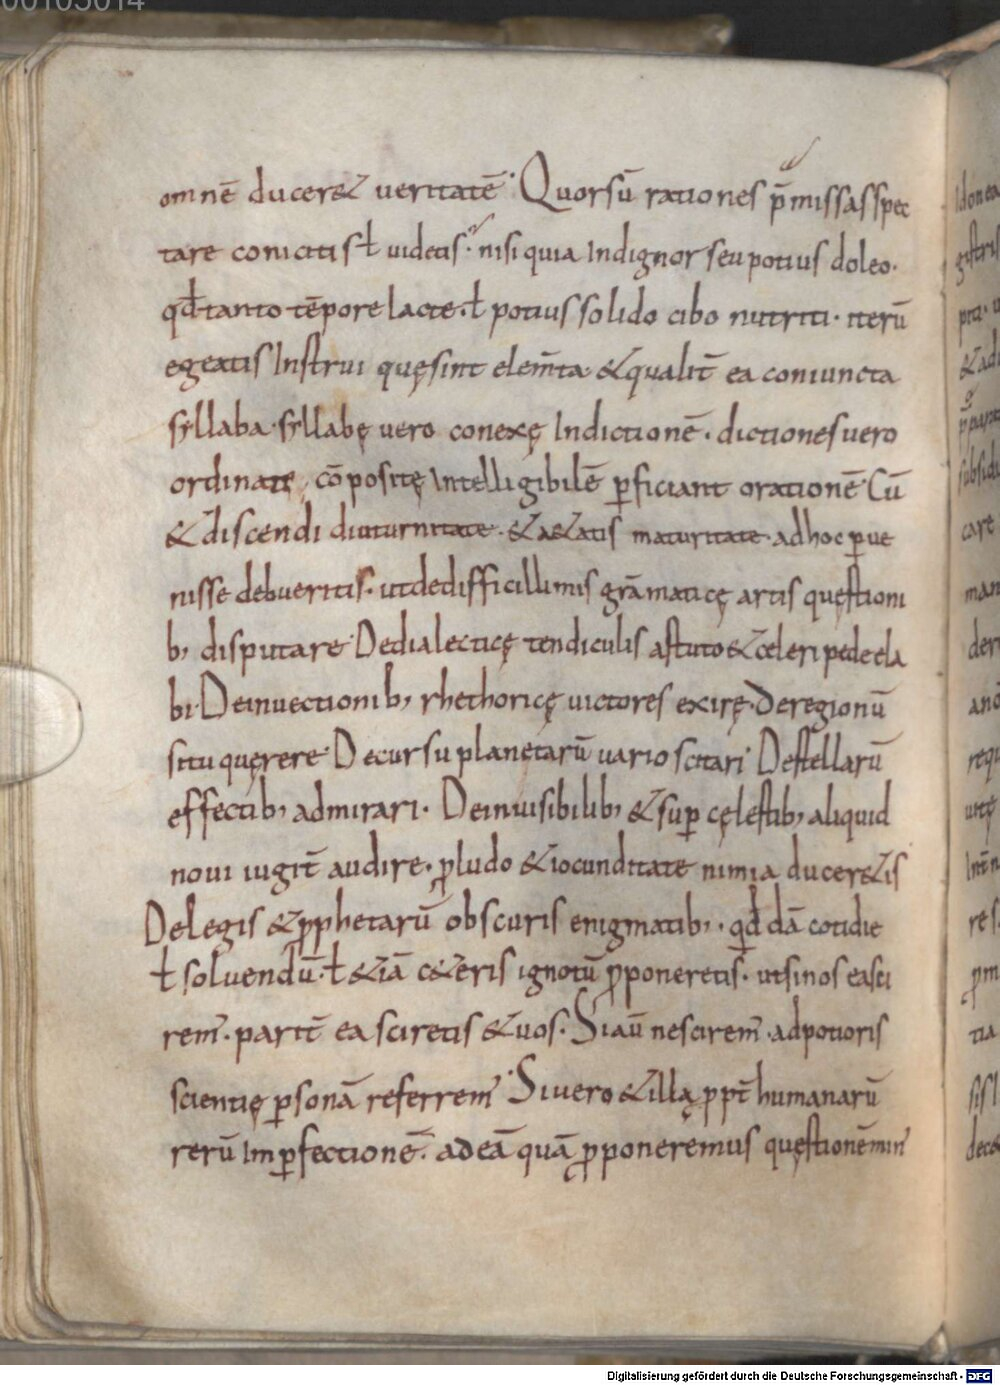 omnē ducer& ueritatē· Quorsū rationes p̄missas spec
tare conicitis ł uidetis· nisi quia Indignor seu potius doleo·
qđ tanto tēpore lacte· ł potius solido cibo nutriti· iterū
egeatis Instrui quęsint elem̄ta & qualit̄ ea coniuncta
syllaba· syllabę uero conexę Indictionē· dictiones uero
ordinate cōpositę Intelligibilē ꝑficiant orationē· Cū
& discendi diuturnitate· & a&atis maturitate· adhoc ꝑue
nisse debueritis· utdedifficillimis grāmaticę artis quęstioni
b; disputare· Dedialecticę tendiculis astuto & celeri pede ela
bi· Deinuectionib; rhethoricę uictores exirę· Deregionū
situ quęrere· Decursu planetarū uario scitari· Destellarū
effectib; admirari· Deinuisibilib; & suꝑ cęlestib; aliquid
noui iugit̄ audire· p̄ludo & iocunditate nimia ducer&is
Delegis & ꝓphetarū obscuris enigmatib;· qđdā cotidie
ł soluendū· ł &iā c&eris ignotū ꝓponeretis· utsinos easci
rem̄· parit̄ ea sciretis & uos· Siaū nescirem̄· adpotioris
scientię ꝑsonā referrem̄· Siuero & illa ꝓpt̄ humanarū
rerū Imꝑfectionē· adeā quā ꝓponeremus quęstionē min̄
Digitalisierung gefördert durch die Deutsche Forschungsgemeinschaft - DFG